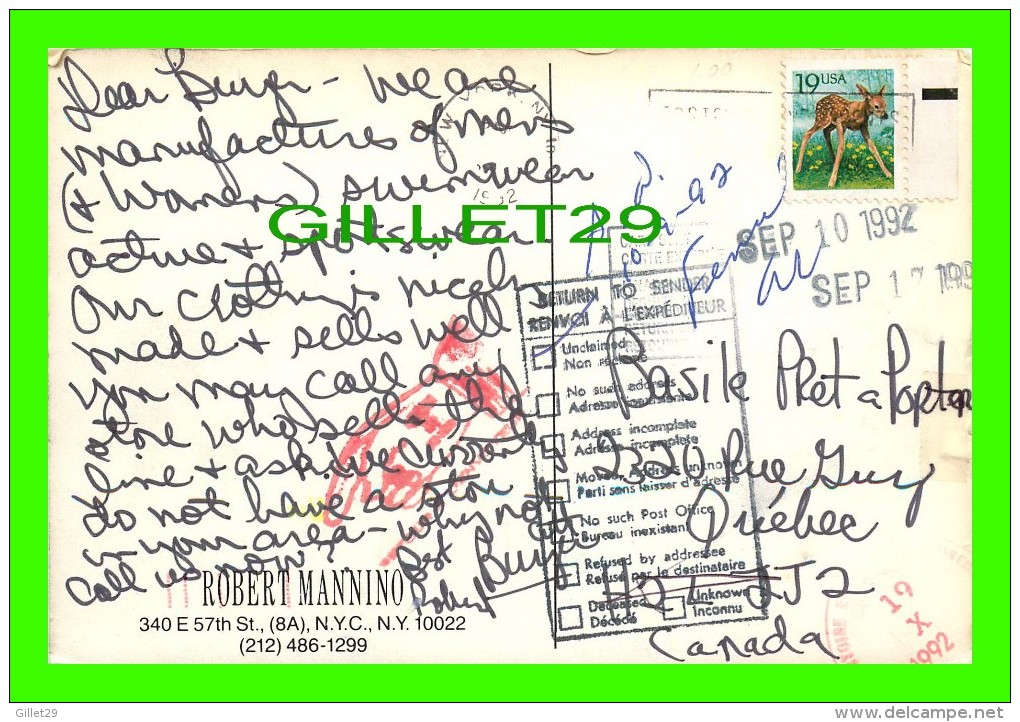 Dear Buyer - We are
manufactures of mens
(+ Womens) swimwear
active + sportswear.
Our clothing is nicely
made + sells well
you may call any
store who sells this
line + ask we currently
do not have a store
in your area - why not
call us now?
Best
Robert
ROBERT MANNINO
340 E 57th St., (8A), N.Y.C., N.Y. 10022
(212) 486-1299
GILLET29
19USA
1992
10-9-92
SEP 10 1992
SEP 17 199
RETURN TO SENDER
RENVOI À L'EXPÉDITEUR
Unclaimed
Non réclamé
No such address
Adresse inexistante
Address incomplete
Adresse incomplète
Moved, Address unknown
Parti sans laisser d'adresse
No such Post Office
Bureau inexistant
Refused by addressee
Refusé par le destinataire
Deceased
Décédé
Unknown
Inconnu
Buyer
Basile Pret a Porter
2320 Rue Guy
Québec
Canada
19
X
1992
Gillet29
www.delcampe.net